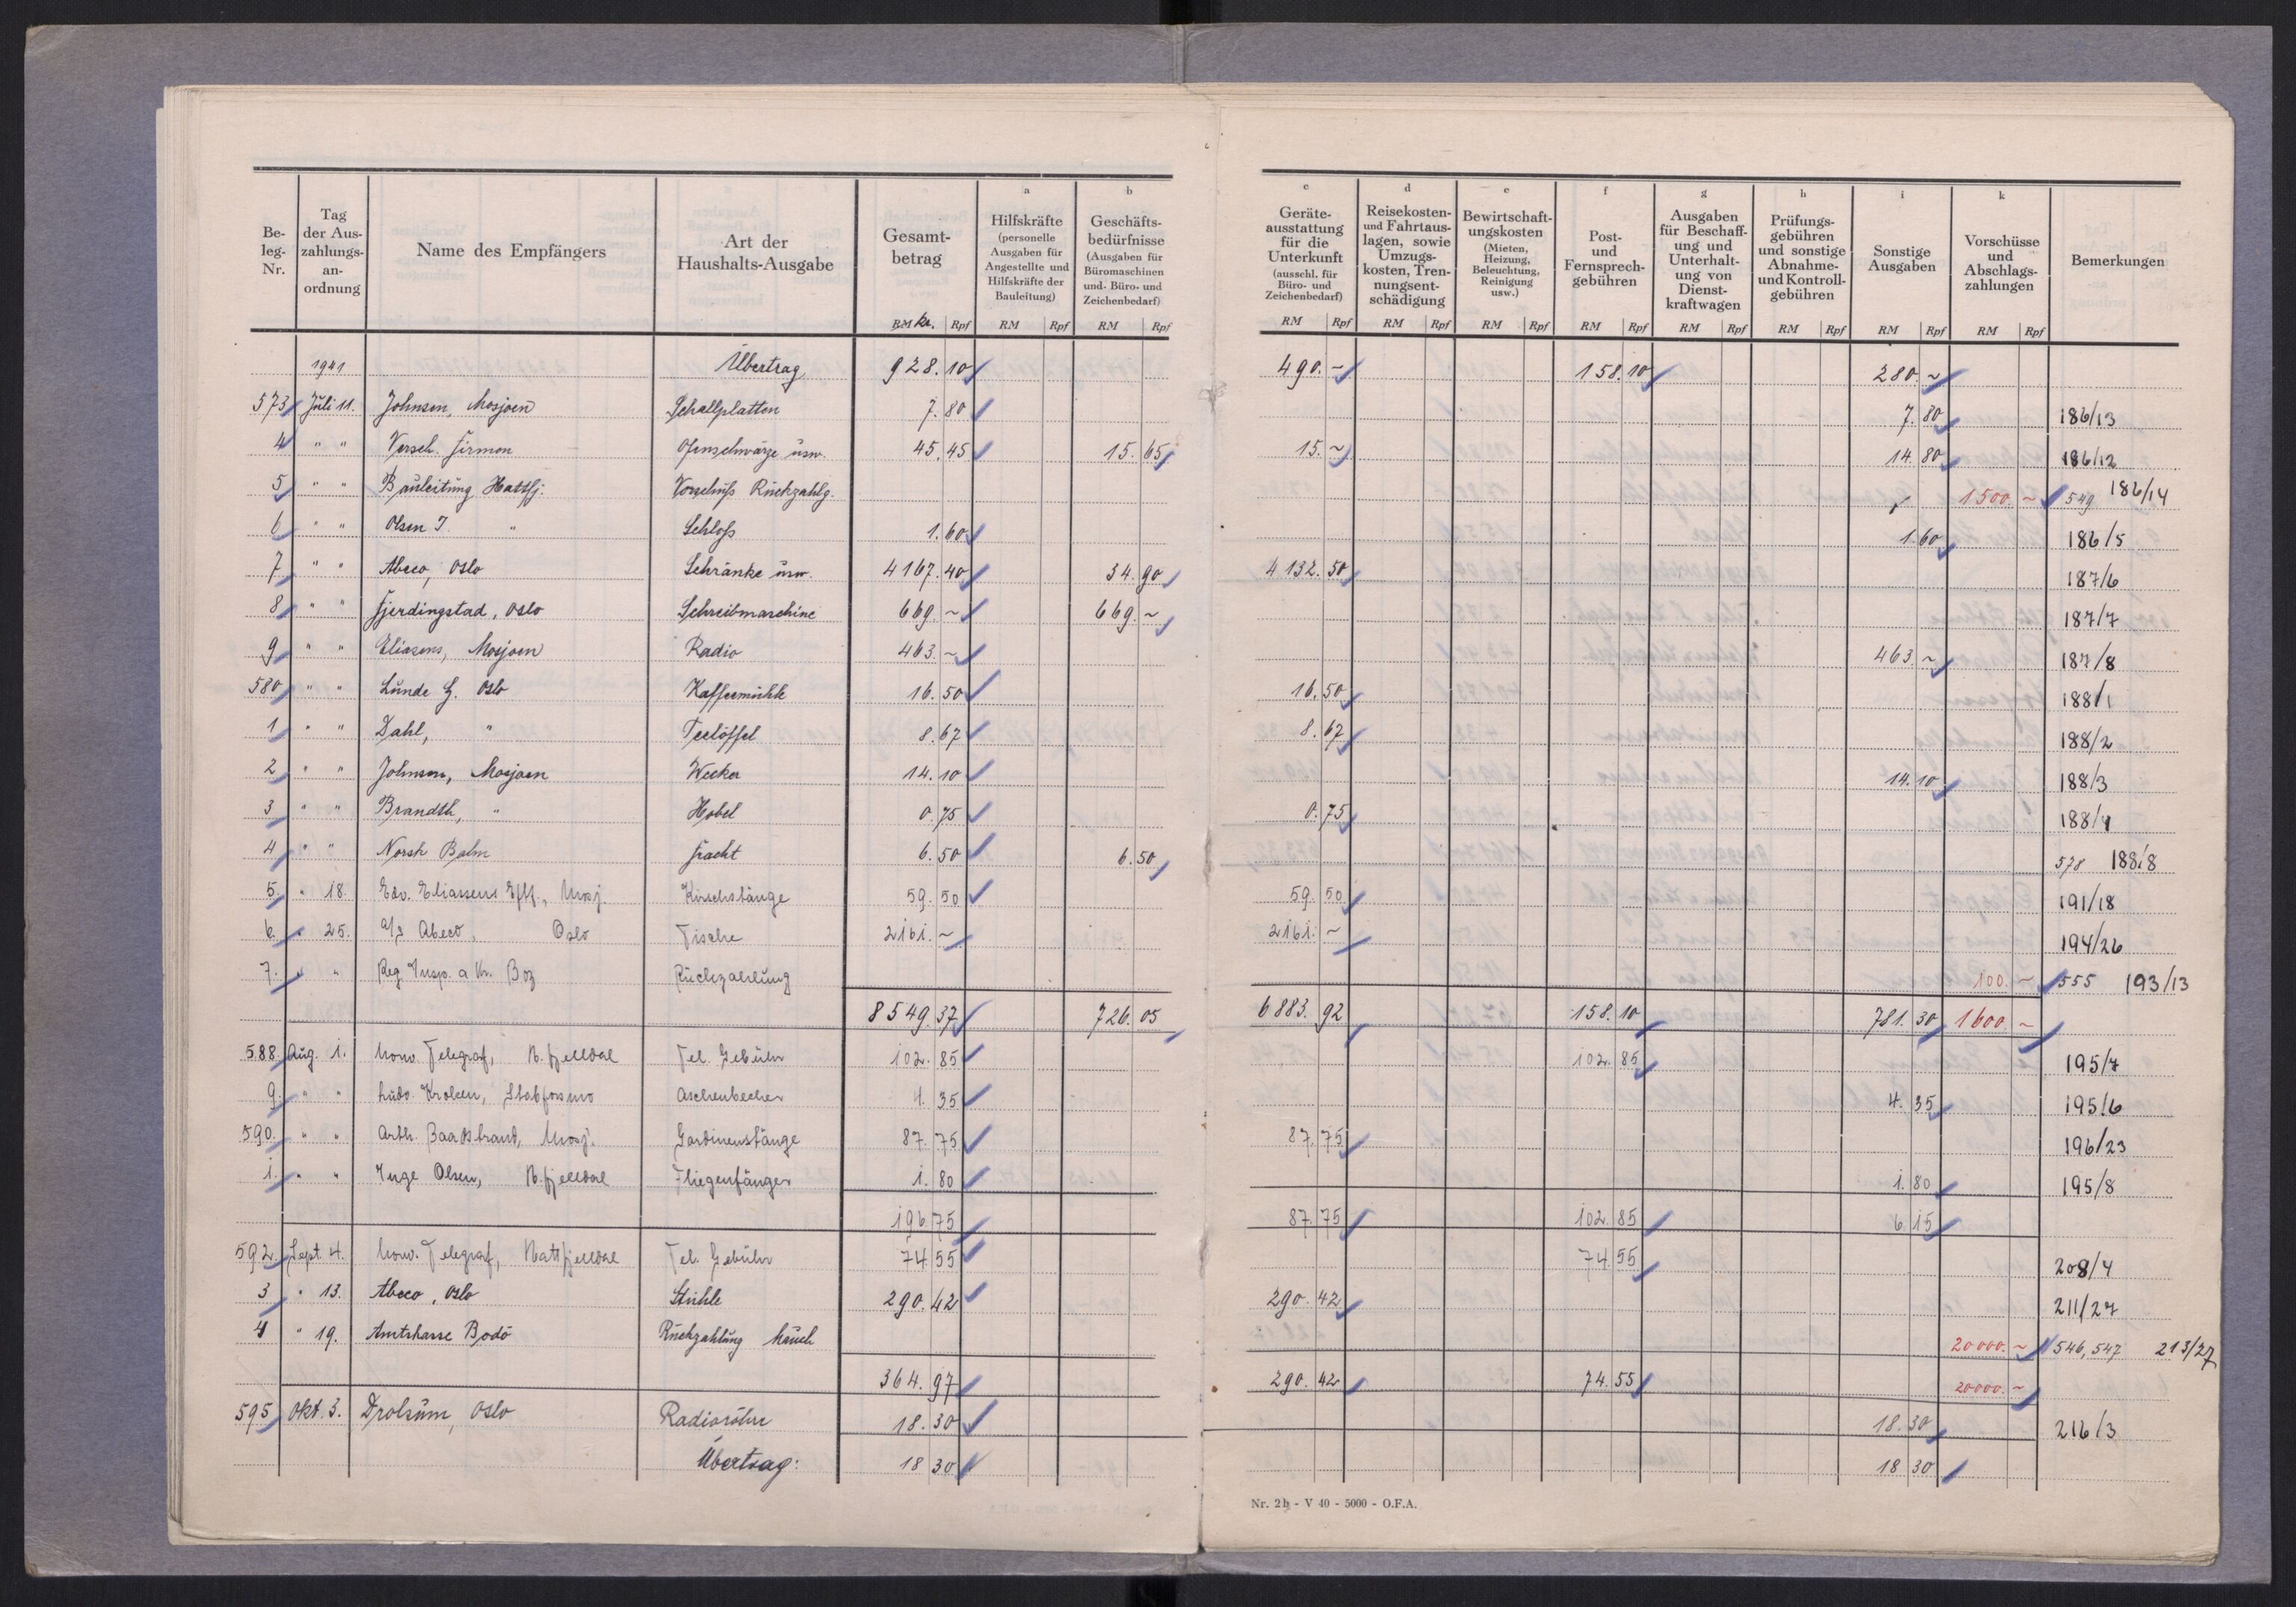 Be-leg-Nr. | Tag der Aus-zahlungs-an-ordnung | Name des Empfängers | Art der Haushalts-Ausgabe | Gesamt-betrag RM kr. Rpf | a Hilfskräfte (personelle Ausgaben für Angestellte und Hilfskräfte der Bauleitung) RM Rpf | b Geschäfts-bedürfnisse (Ausgaben für Büromaschinen und- Büro- und Zeichenbedarf) RM Rpf | c Geräte-ausstattung für die Unterkunft (ausschl. für Büro- und Zeichenbedarf) RM Rpf | d Reisekosten- und Fahrtaus-lagen, sowie Umzugs-kosten, Tren-nungsent-schädigung RM Rpf | e Bewirtschaft-ungskosten (Mieten, Heizung, Beleuchtung, Reinigung usw.) RM Rpf | f Post- und Fernsprech-gebühren RM Rpf | g Ausgaben für Beschaff-ung und Unterhalt-ung von Dienst-kraftwagen RM Rpf | h Prüfungs-gebühren und sonstige Abnahme- und Kontroll-gebühren RM Rpf | i Sonstige Ausgaben RM Rpf | k Vorschüsse und Abschlags-zahlungen RM Rpf | Bemerkungen
1941 Übertrag 928.10 490.~ 158.10 280.~
573 Juli 11. Johnsen, Mosjoen Schallplatten 7.80 7.80 186/13
4 " " Versch. Firmen Ofenschwärze usw. 45.45 15.65 15.~ 14.80 186/12
5 " " Bauleitung Hattfj. Vorschuß Rückzahlg. 1500.~ 549 186/14
6 " " Olsen I. " Schloß 1.60 1.60 186/5
7 " " Abeco, Oslo Schränke usw. 4167.40 34.90 4132.50 187/6
8 " " Fjerdingstad, Oslo Schreibmaschine 669.~ 669.~ 187/7
9 " " Eliasens, Mosjoen Radio 463.~ 463.~ 187/8
580 " " Lunde G. Oslo Kaffeemühle 16.50 16.50 188/1
1 " " Dahl, " Teelöffel 8.67 8.67 188/2
2 " " Johnsen, Mosjoen Wecker 14.10 14.10 188/3
3 " " Brandth, " Hobel 0.75 0.75 188/4
4 " " Norsk Fracht 6.50 6.50 578 188/8
5. " 18. Edv. Eliassens Eftf., Mosj. Kirschstänge 59.50 59.50 191/18
6. " 25. a/s Abeco, Oslo Tische 2161.~ 2161.~ 194/26
7. " " Reg. Insp. a Kr. Boz Rückzahlung 100.~ 555 193/13
8549.37 726.05 6883.92 158.10 781.30 1600.~
588. Aug. 1. Norw. Telegraf, H.fjelldal Tel. Gebühr 102.85 102.85 195/7
9. " " Ludv. Krolsen, Stabfossmo Aschenbecher 4.35 4.35 195/6
590. " " Arth. Baadstrand, Mosj. Gardinenstänge 87.75 87.75 196/23
1. " " Inge Olsen, H.fjelldal Fliegenfänger 1.80 1.80 195/8
196.75 87.75 102.85 6.15
592. Sept. 4. Norw. Telegraf, Hattfjelldal Tel. Gebühr 74.55 74.55 208/4
3 " 13. Abeco, Oslo Stühle 290.42 290.42 211/27
4 " 19. Amtskasse Bodö Rückzahlung 20000.~ 546,547 213/27
364.97 290.42 74.55 20000.~
595 Okt. 3. Drolsum, Oslo Radioröhre 18.30 18.30 216/3
Übertrag: 18 30 18 30
Nr. 2b - V 40 - 5000 - O.F.A.